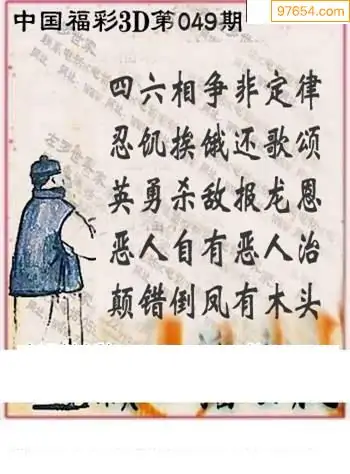 97654.com
中国福彩3D第049期
四六相争非定律
忍饥挨饿还歌颂
英勇杀敌报龙恩
恶人自有恶人治
颠错倒凤有木头